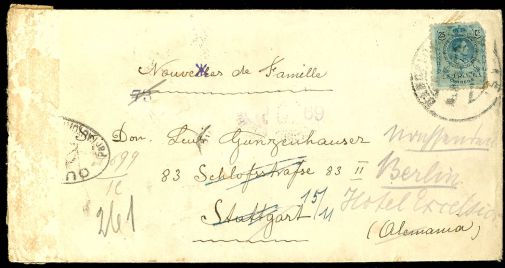 Nouvelles de Famille
73
69
Don Luis Gunzenhauser
83 Schloßstraße 83 II
Stuttgart 15/11
Berlin
Hotel Excelsior
(Alemania)
261